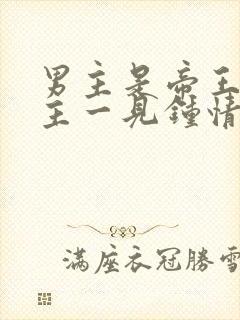 男主是帝王
主一見鐘情
滿座衣冠勝雪